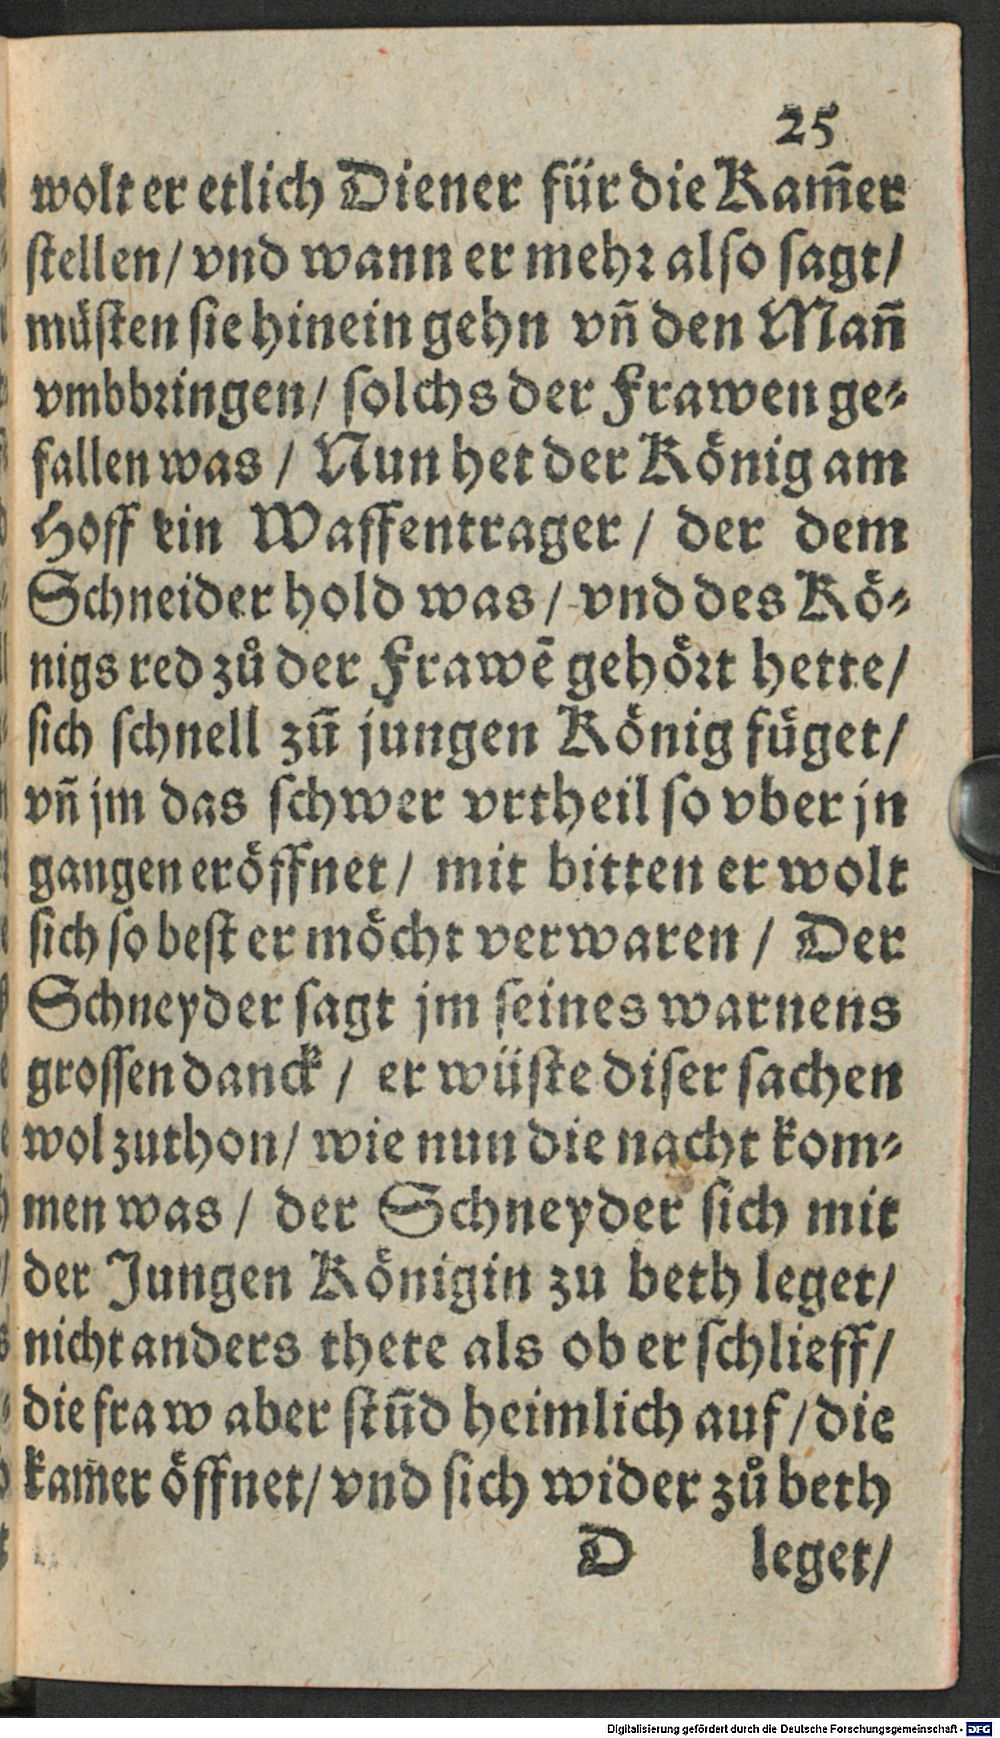 25
wolt er etlich Diener für die Kam̄er
stellen/ vnd wann er mehr also sagt/
müsten sie hinein gehn vn̄ den Man̄
vmbbringen/ solchs der Frawen ge⸗
fallen was / Nun het der König am
Hoff ein Waffentrager / der dem
Schneider hold was / vnd des Kö⸗
nigs red zů der Frawē gehört hette/
sich schnell zū jungen König füget/
vn̄ jm das schwer vrtheil so vber jn
gangen eröffnet / mit bitten er wolt
sich so best er möcht verwaren / Der
Schneyder sagt jm seines warnens
grossen danck / er wüste diser sachen
wol zuthon/ wie nun die nacht kom⸗
men was / der Schneyder sich mit
der Jungen Königin zu beth leget/
nicht anders there als ob er schlieff/
die fraw aber stūd heimlich auf / die
kam̄er öffnet/ vnd sich wider zů beth
D leget/
Digitalisierung gefördert durch die Deutsche Forschungsgemeinschaft - DFG